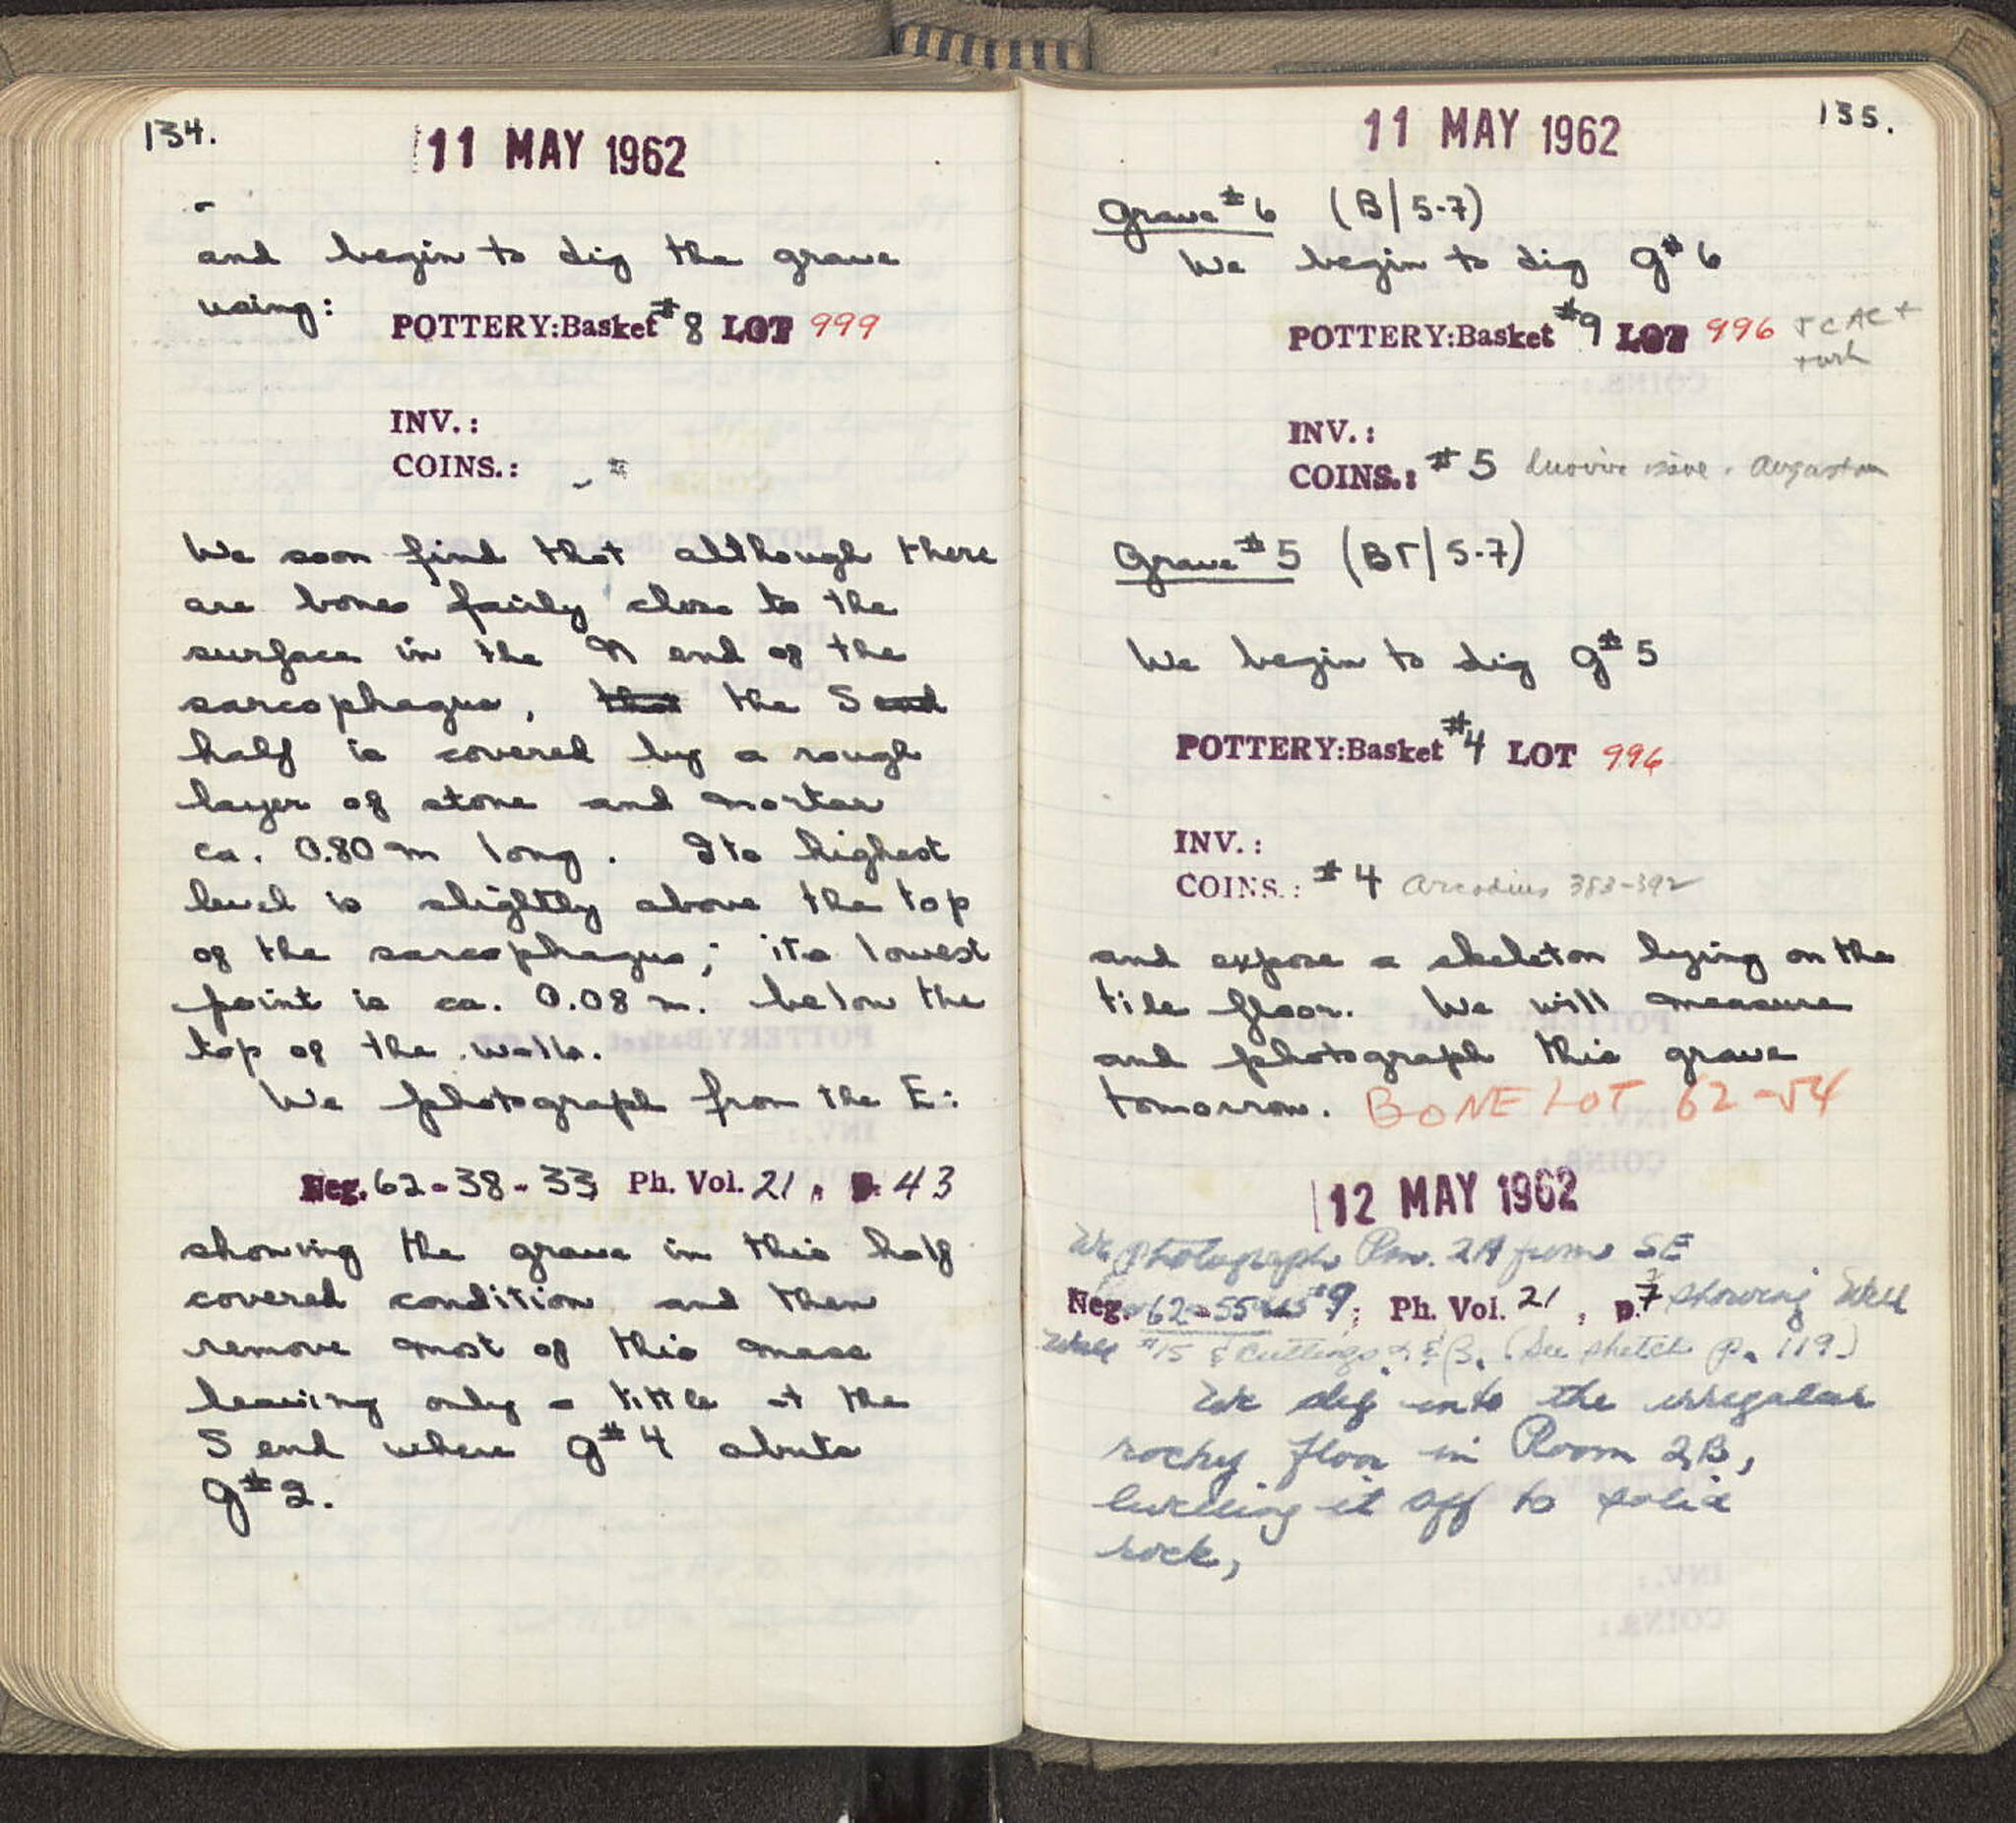 134.
11 MAY 1962
and begin to dig the grave
using:
POTTERY:Basket #8 LOT 999
INV.:
COINS.:
We soon find that although there
are bones fairly close to the
surface in the N end of the
sarcophagus, that the S end
half is covered by a rough
layer of stone and mortar
ca. 0.80 m long. Its highest
level is slightly above the top
of the sarcophagus; its lowest
point is ca. 0.08 m. below the
top of the walls.
We photograph from the E:
Neg. 62-38-33 Ph. Vol. 21, p. 43
showing the grave in this half
covered condition and then
remove most of this mass
leaving only a little at the
S end where g#4 abuts
g#2.
135.
11 MAY 1962
Grave #6 (B/5-7)
We begin to dig g#6
POTTERY:Basket #9 LOT 996
INV.:
COINS.: #5 issue. Augustan
Grave #5 (BΓ/5-7)
We begin to dig g#5
POTTERY:Basket #4 LOT 996
INV.:
COINS.: #4 Arcadius 383-392
and expose a skeleton lying on the
tile floor. We will measure
and photograph this grave
tomorrow. BONE LOT 62-54
12 MAY 1962
We photograph Rm. 2A from SE
Neg. 62-55 #9; Ph. Vol. 21, p. 7 showing Well
Wall #15 & Cuttings α & β. (See sketch p. 119)
We dig into the irregular
rocky floor in Room 2B,
levelling it off to solid
rock,